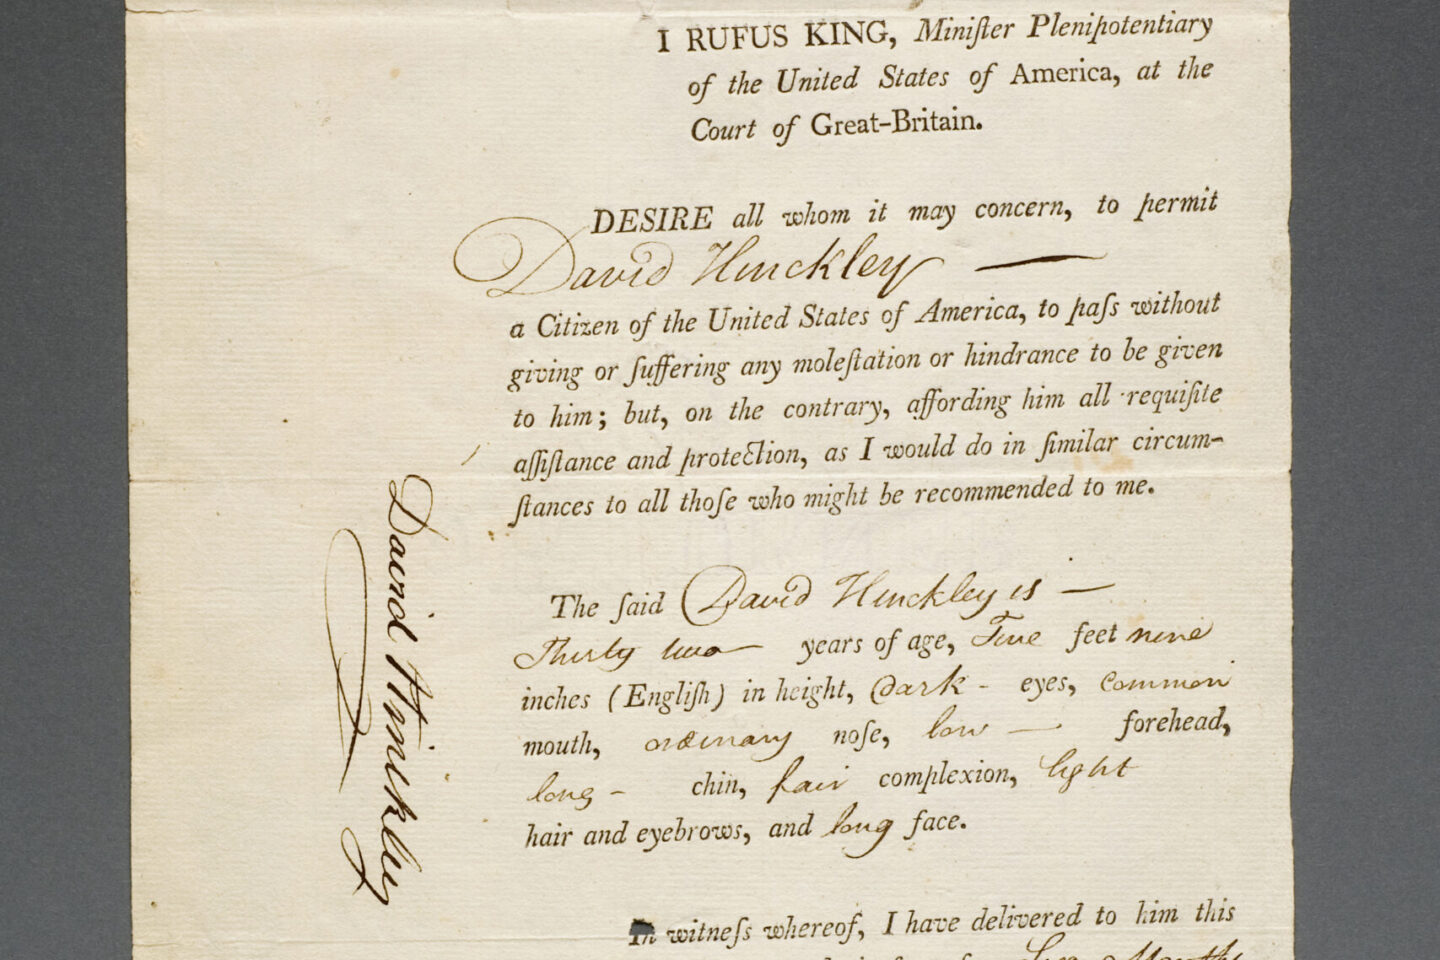 I RUFUS KING, Miniſter Plenipotentiary
of the United States of America, at the
Court of Great-Britain.
DESIRE all whom it may concern, to permit
David Hinckley —
a Citizen of the United States of America, to paſs without
giving or ſuffering any moleſtation or hindrance to be given
to him; but, on the contrary, affording him all requiſite
aſſiſtance and protection, as I would do in ſimilar circum-
ſtances to all thoſe who might be recommended to me.
The ſaid David Hinckley is —
Thirty two — years of age, Five feet nine
inches (Engliſh) in height, dark - eyes, common
mouth, ordinary noſe, low — forehead,
long - chin, fair complexion, light
hair and eyebrows, and long face.
David Hinckley
In witneſs whereof, I have delivered to him this
Months